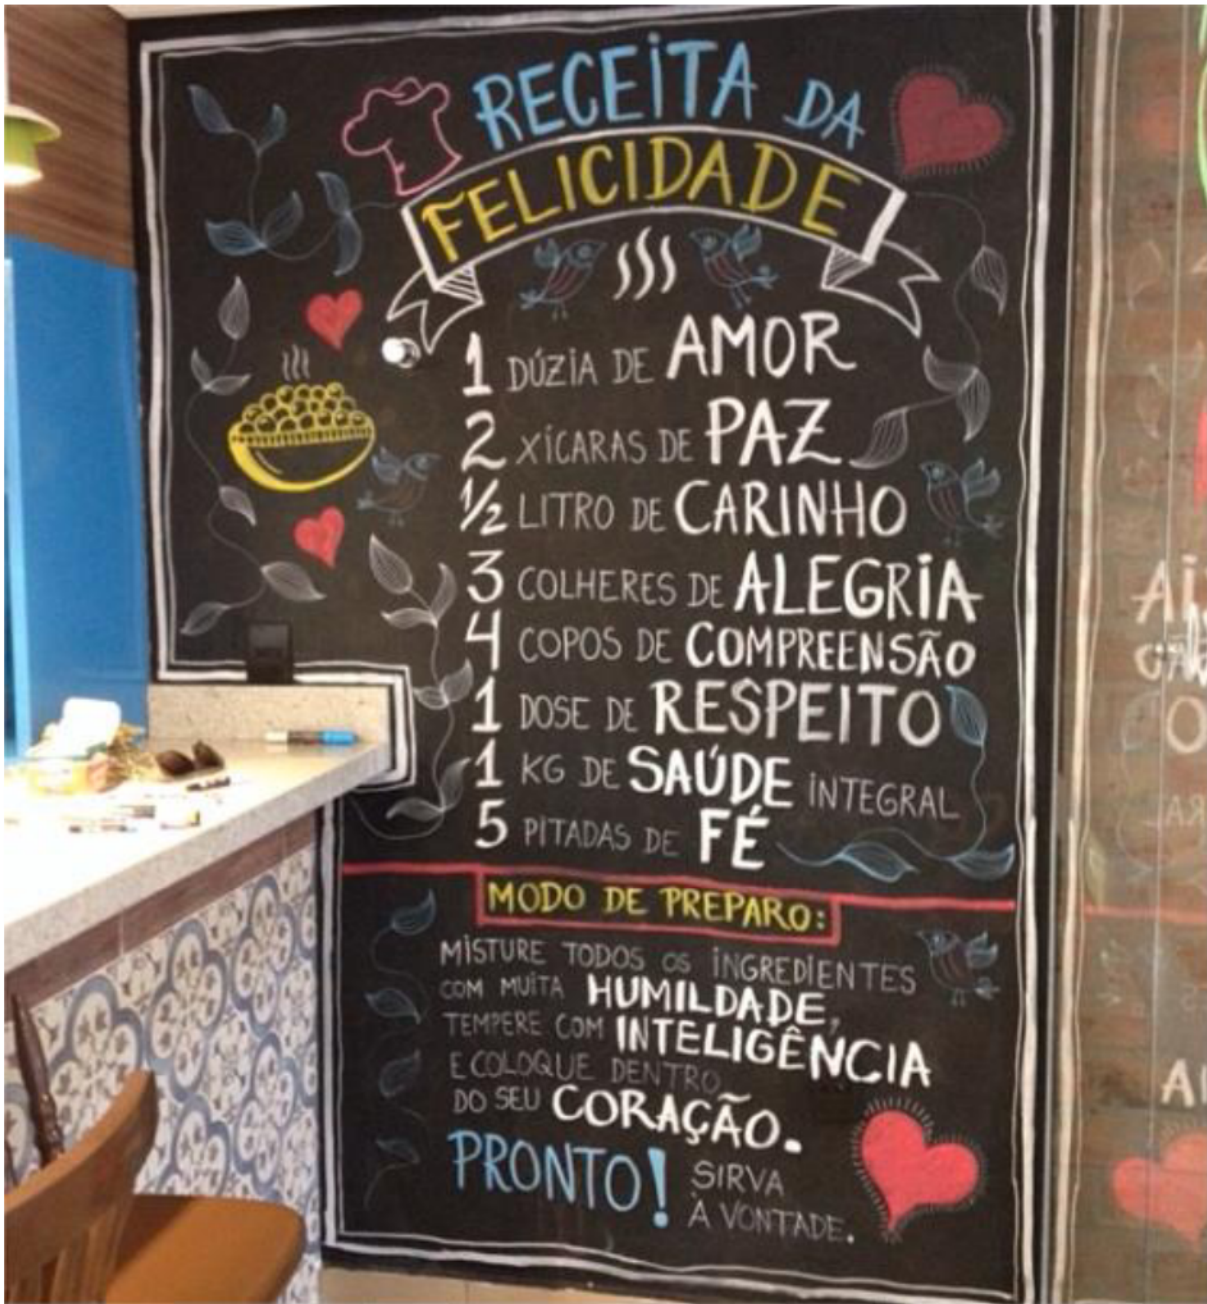 RECEITA DA
FELICIDADE
1 DÚZIA DE AMOR
2 XÍCARAS DE PAZ
1/2 LITRO DE CARINHO
3 COLHERES DE ALEGRIA
4 COPOS DE COMPREENSÃO
1 DOSE DE RESPEITO
1 KG DE SAÚDE INTEGRAL
5 PITADAS DE FÉ
MODO DE PREPARO:
MISTURE TODOS OS INGREDIENTES
COM MUITA HUMILDADE,
TEMPERE COM INTELIGÊNCIA
E COLOQUE DENTRO
DO SEU CORAÇÃO.
PRONTO! SIRVA
À VONTADE.